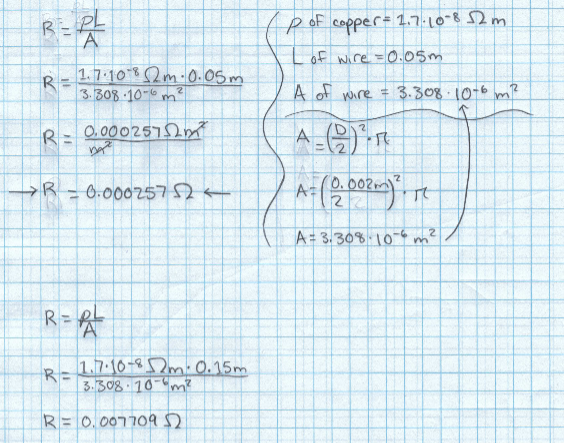 R = ρL/A
R = 1.7·10⁻⁸ Ωm · 0.05m / 3.308·10⁻⁶ m²
R = 0.000257 Ωm² / m²
→ R = 0.000257 Ω ←
ρ of copper = 1.7·10⁻⁸ Ωm
L of wire = 0.05m
A of wire = 3.308·10⁻⁶ m²
A = (D/2)² · π
A = (0.002m/2)² · π
A = 3.308·10⁻⁶ m²
R = ρL/A
R = 1.7·10⁻⁸ Ωm · 0.15m / 3.308·10⁻⁶ m²
R = 0.007709 Ω